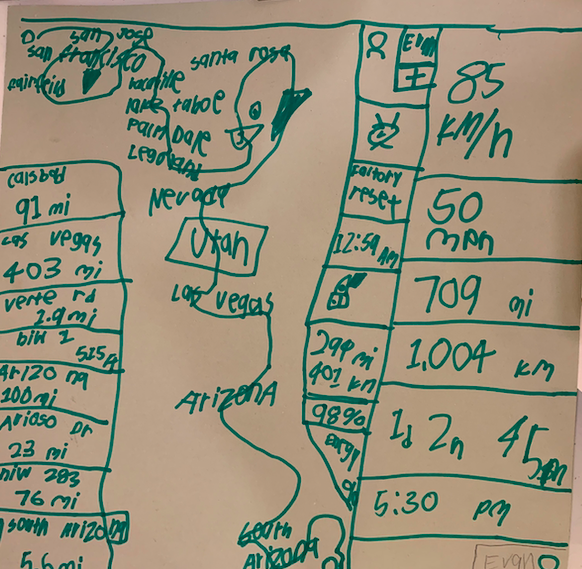 san Jose
san francisco
fairfield
santa rosa
lake tahoe
Palm Dale
Nevada
Utah
Las Vegas
ArizonA
South
ArizonA
carlsbad
91 mi
Las Vegas
403 mi
verte rd
2.9 mi
515 ft
Arizo na
100 mi
Arioso Dr
23 mi
hiw 283
76 mi
south Arizona
5.6 mi
Evan
factory
reset
12:59 AM
299 mi
401 km
98%
85
KM/h
50
mph
709 mi
1,004 km
1d 2h 45m
5:30 pm
Evan